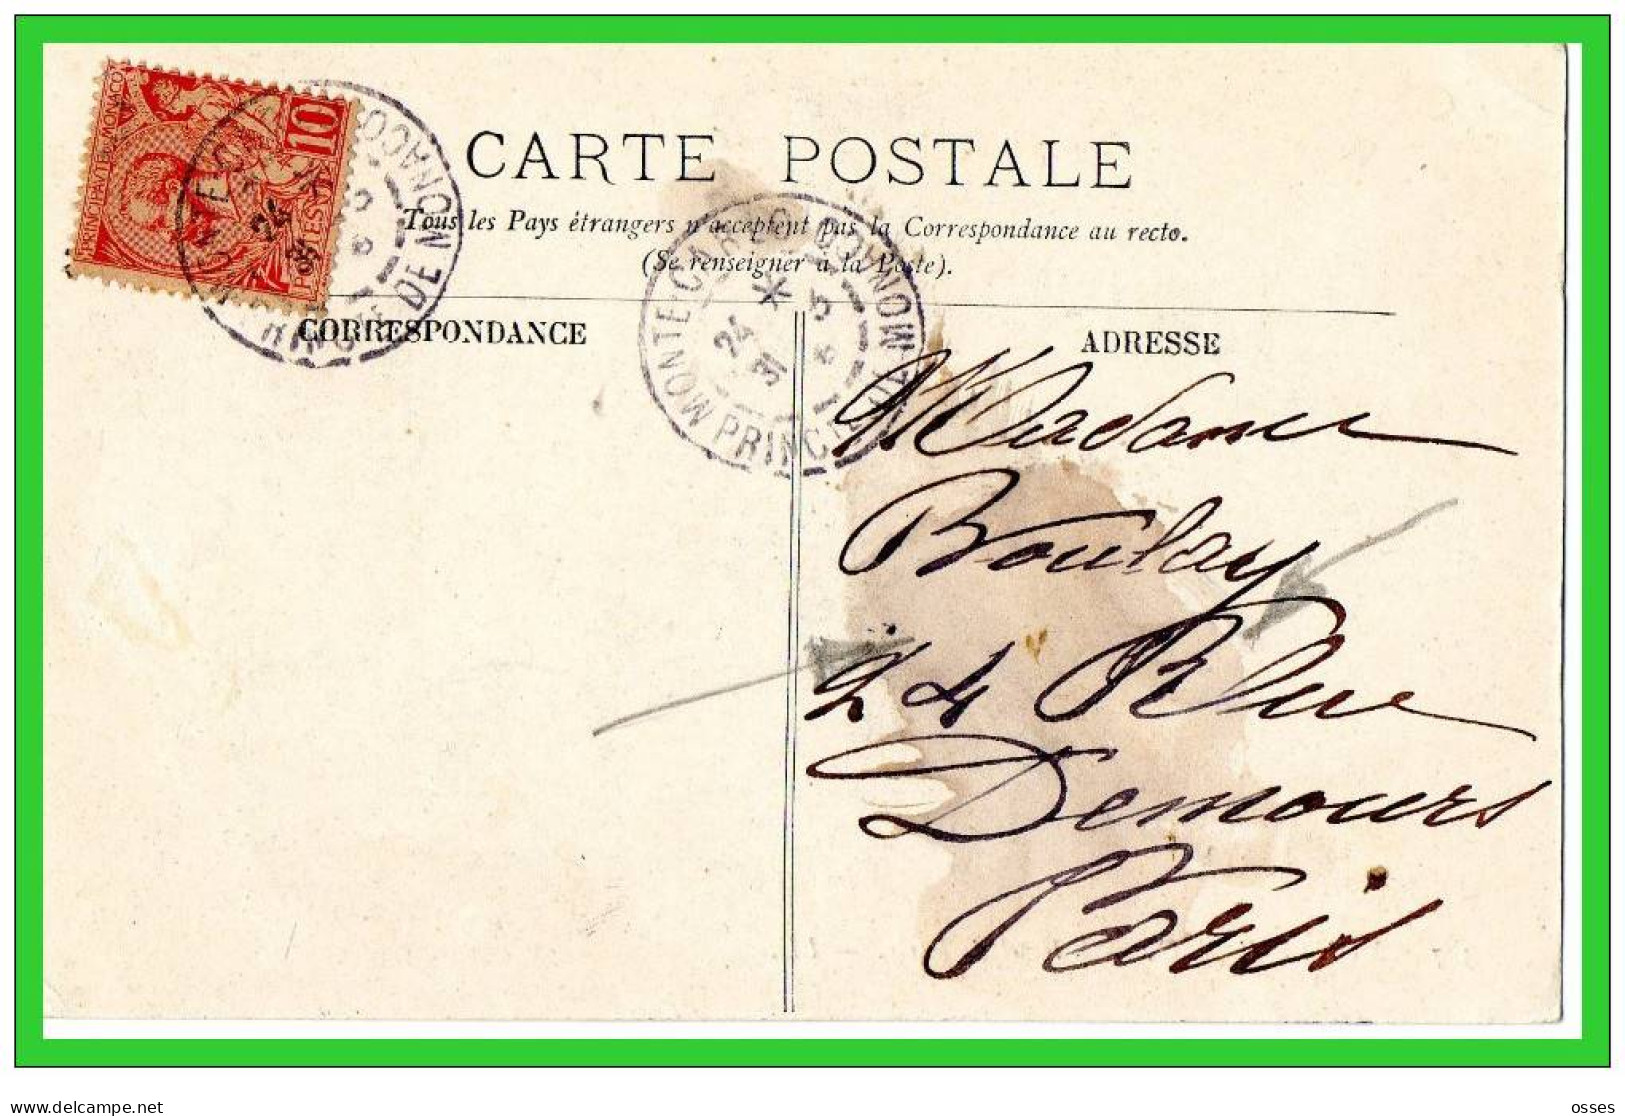 PRINCIPAUTÉ DE MONACO
10
POSTES
MONTE-CARLO
PRINCIPAUTÉ DE MONACO
24
CARTE POSTALE
Tous les Pays étrangers n'acceptent pas la Correspondance au recto.
(Se renseigner à la Poste).
CORRESPONDANCE
ADRESSE
MONTE-CARLO
PRINCIPAUTÉ DE MONACO
24
Madame
Boulay
24 Rue
Demours
Paris
delcampe.net
osses